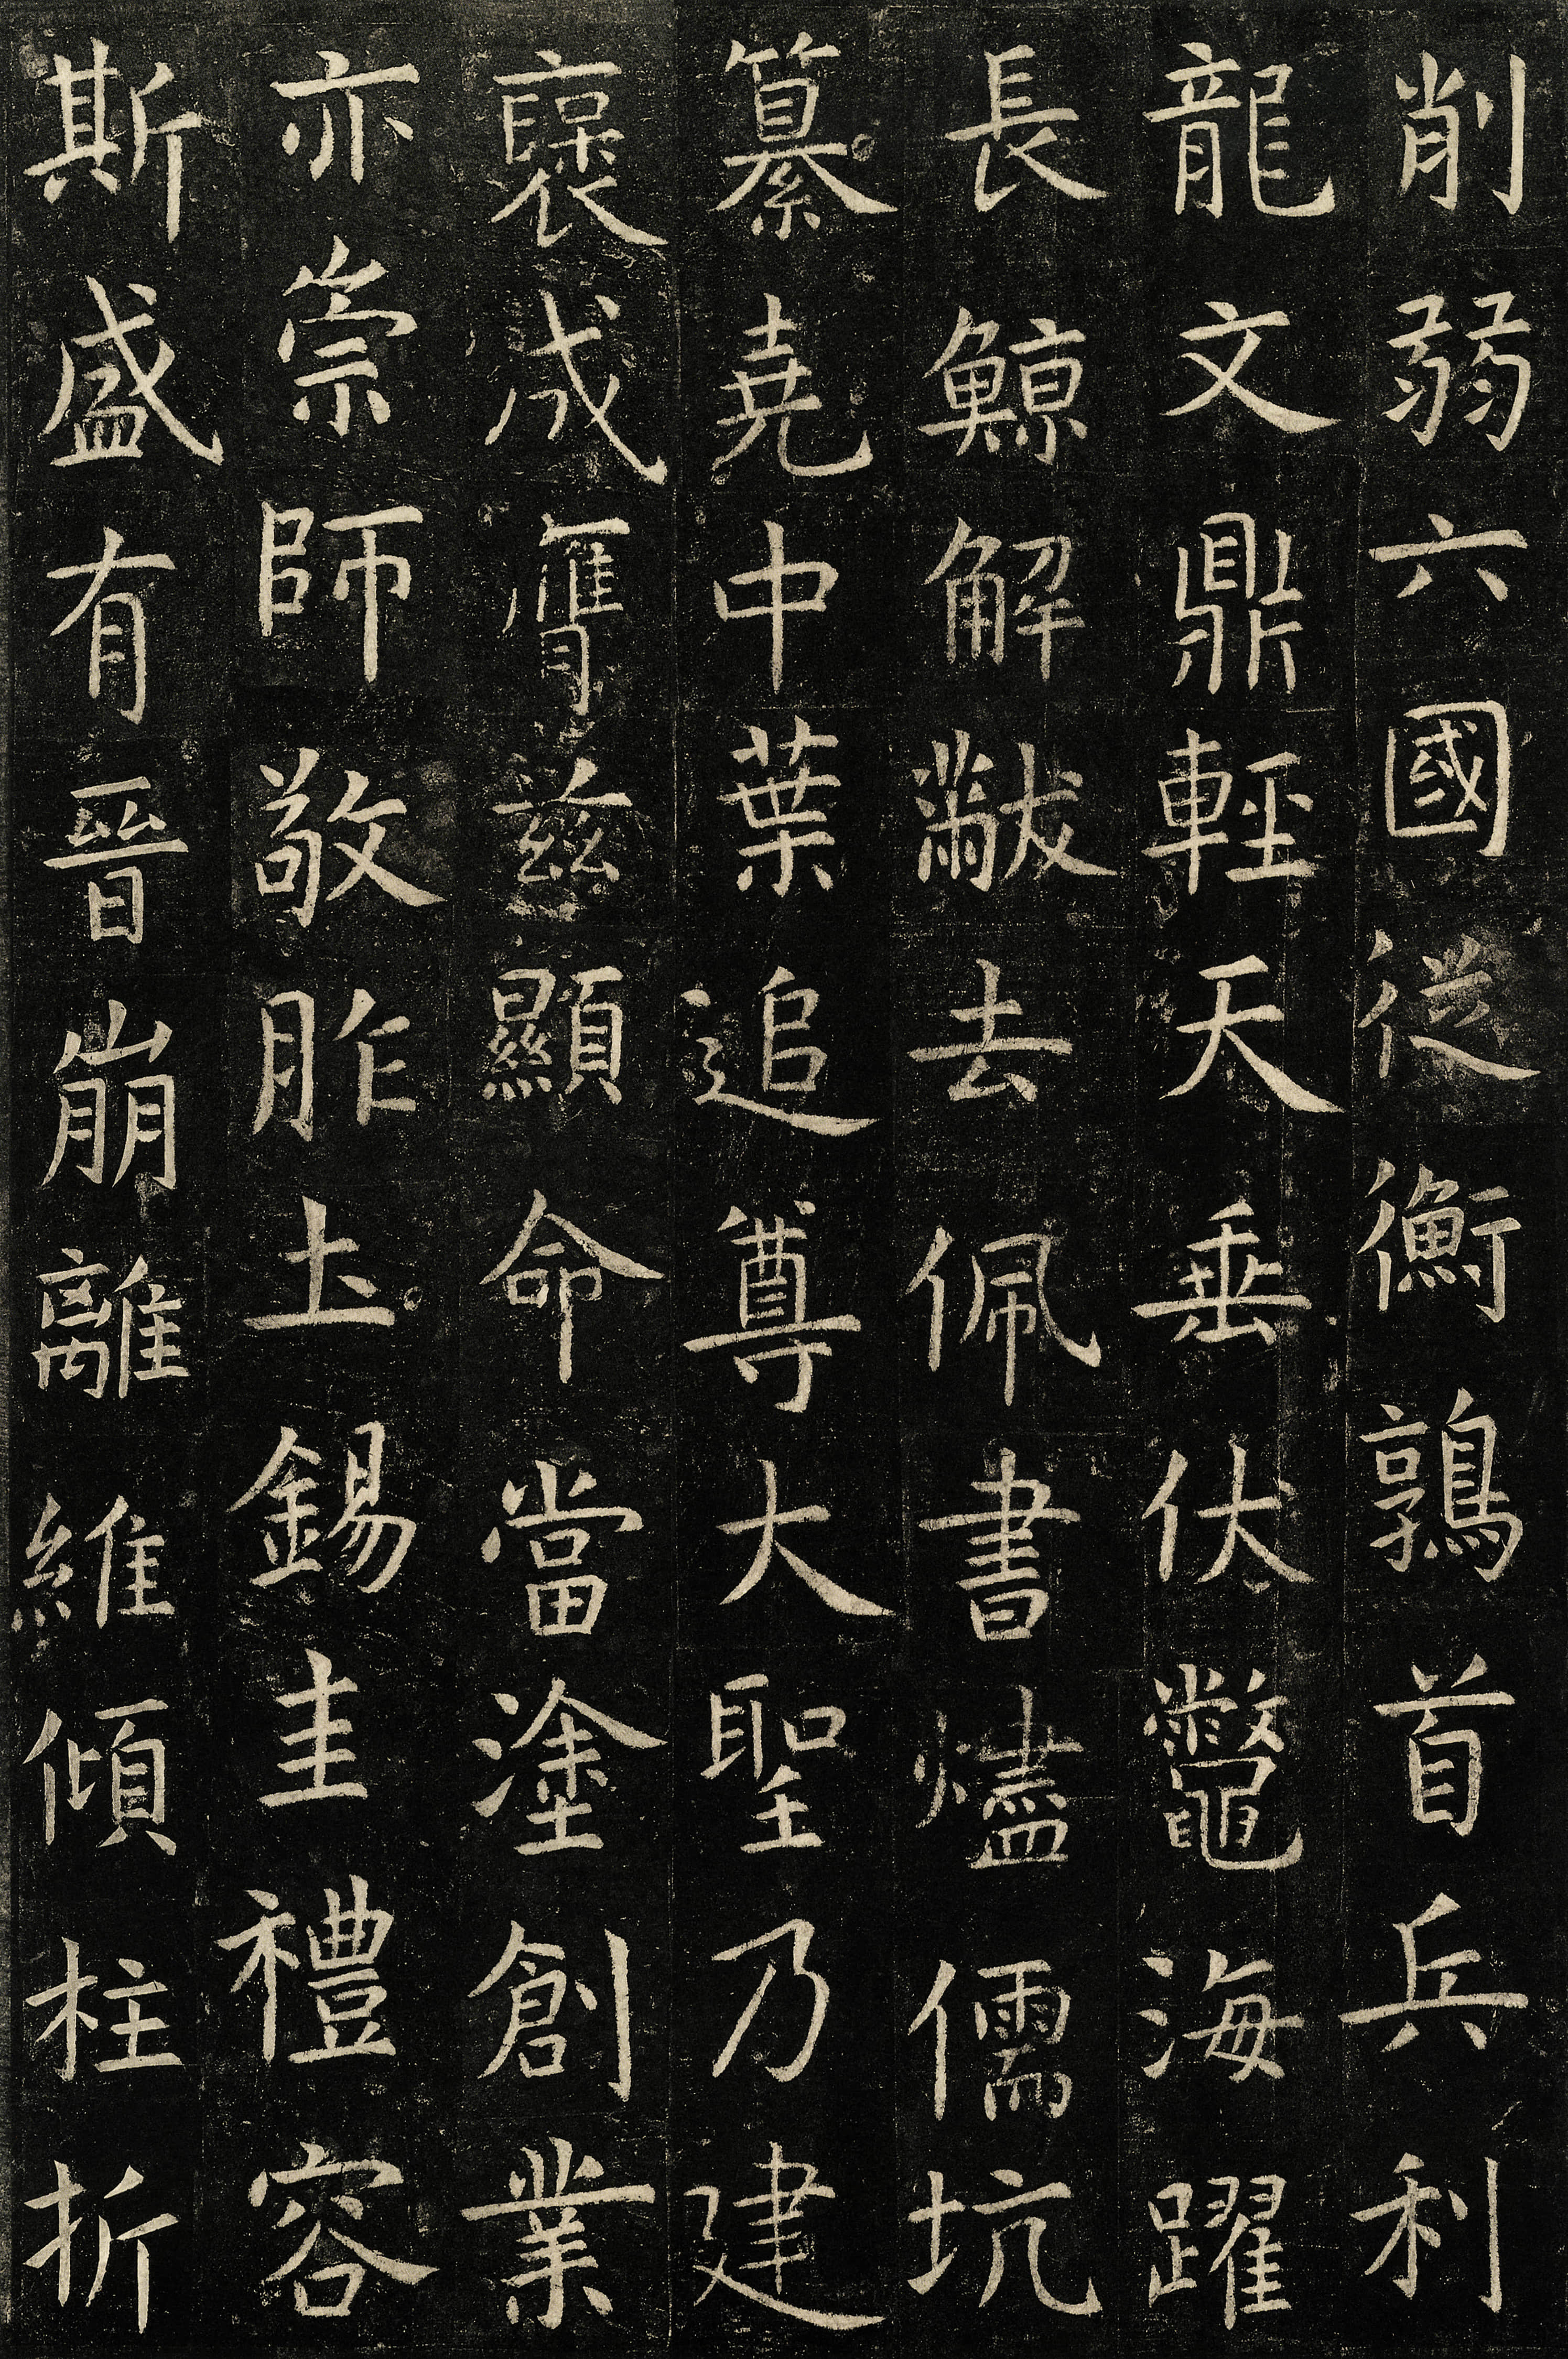 削弱六國従衡鶉首兵利
龍文鼎輕天垂伏鼈海躍
長鯨解黻去佩書燼儒坑
纂堯中葉追尊大聖乃建
褒成膺茲顯命當塗創業
亦崇師敬胙土錫圭禮容
斯盛有晉崩離維傾柱折